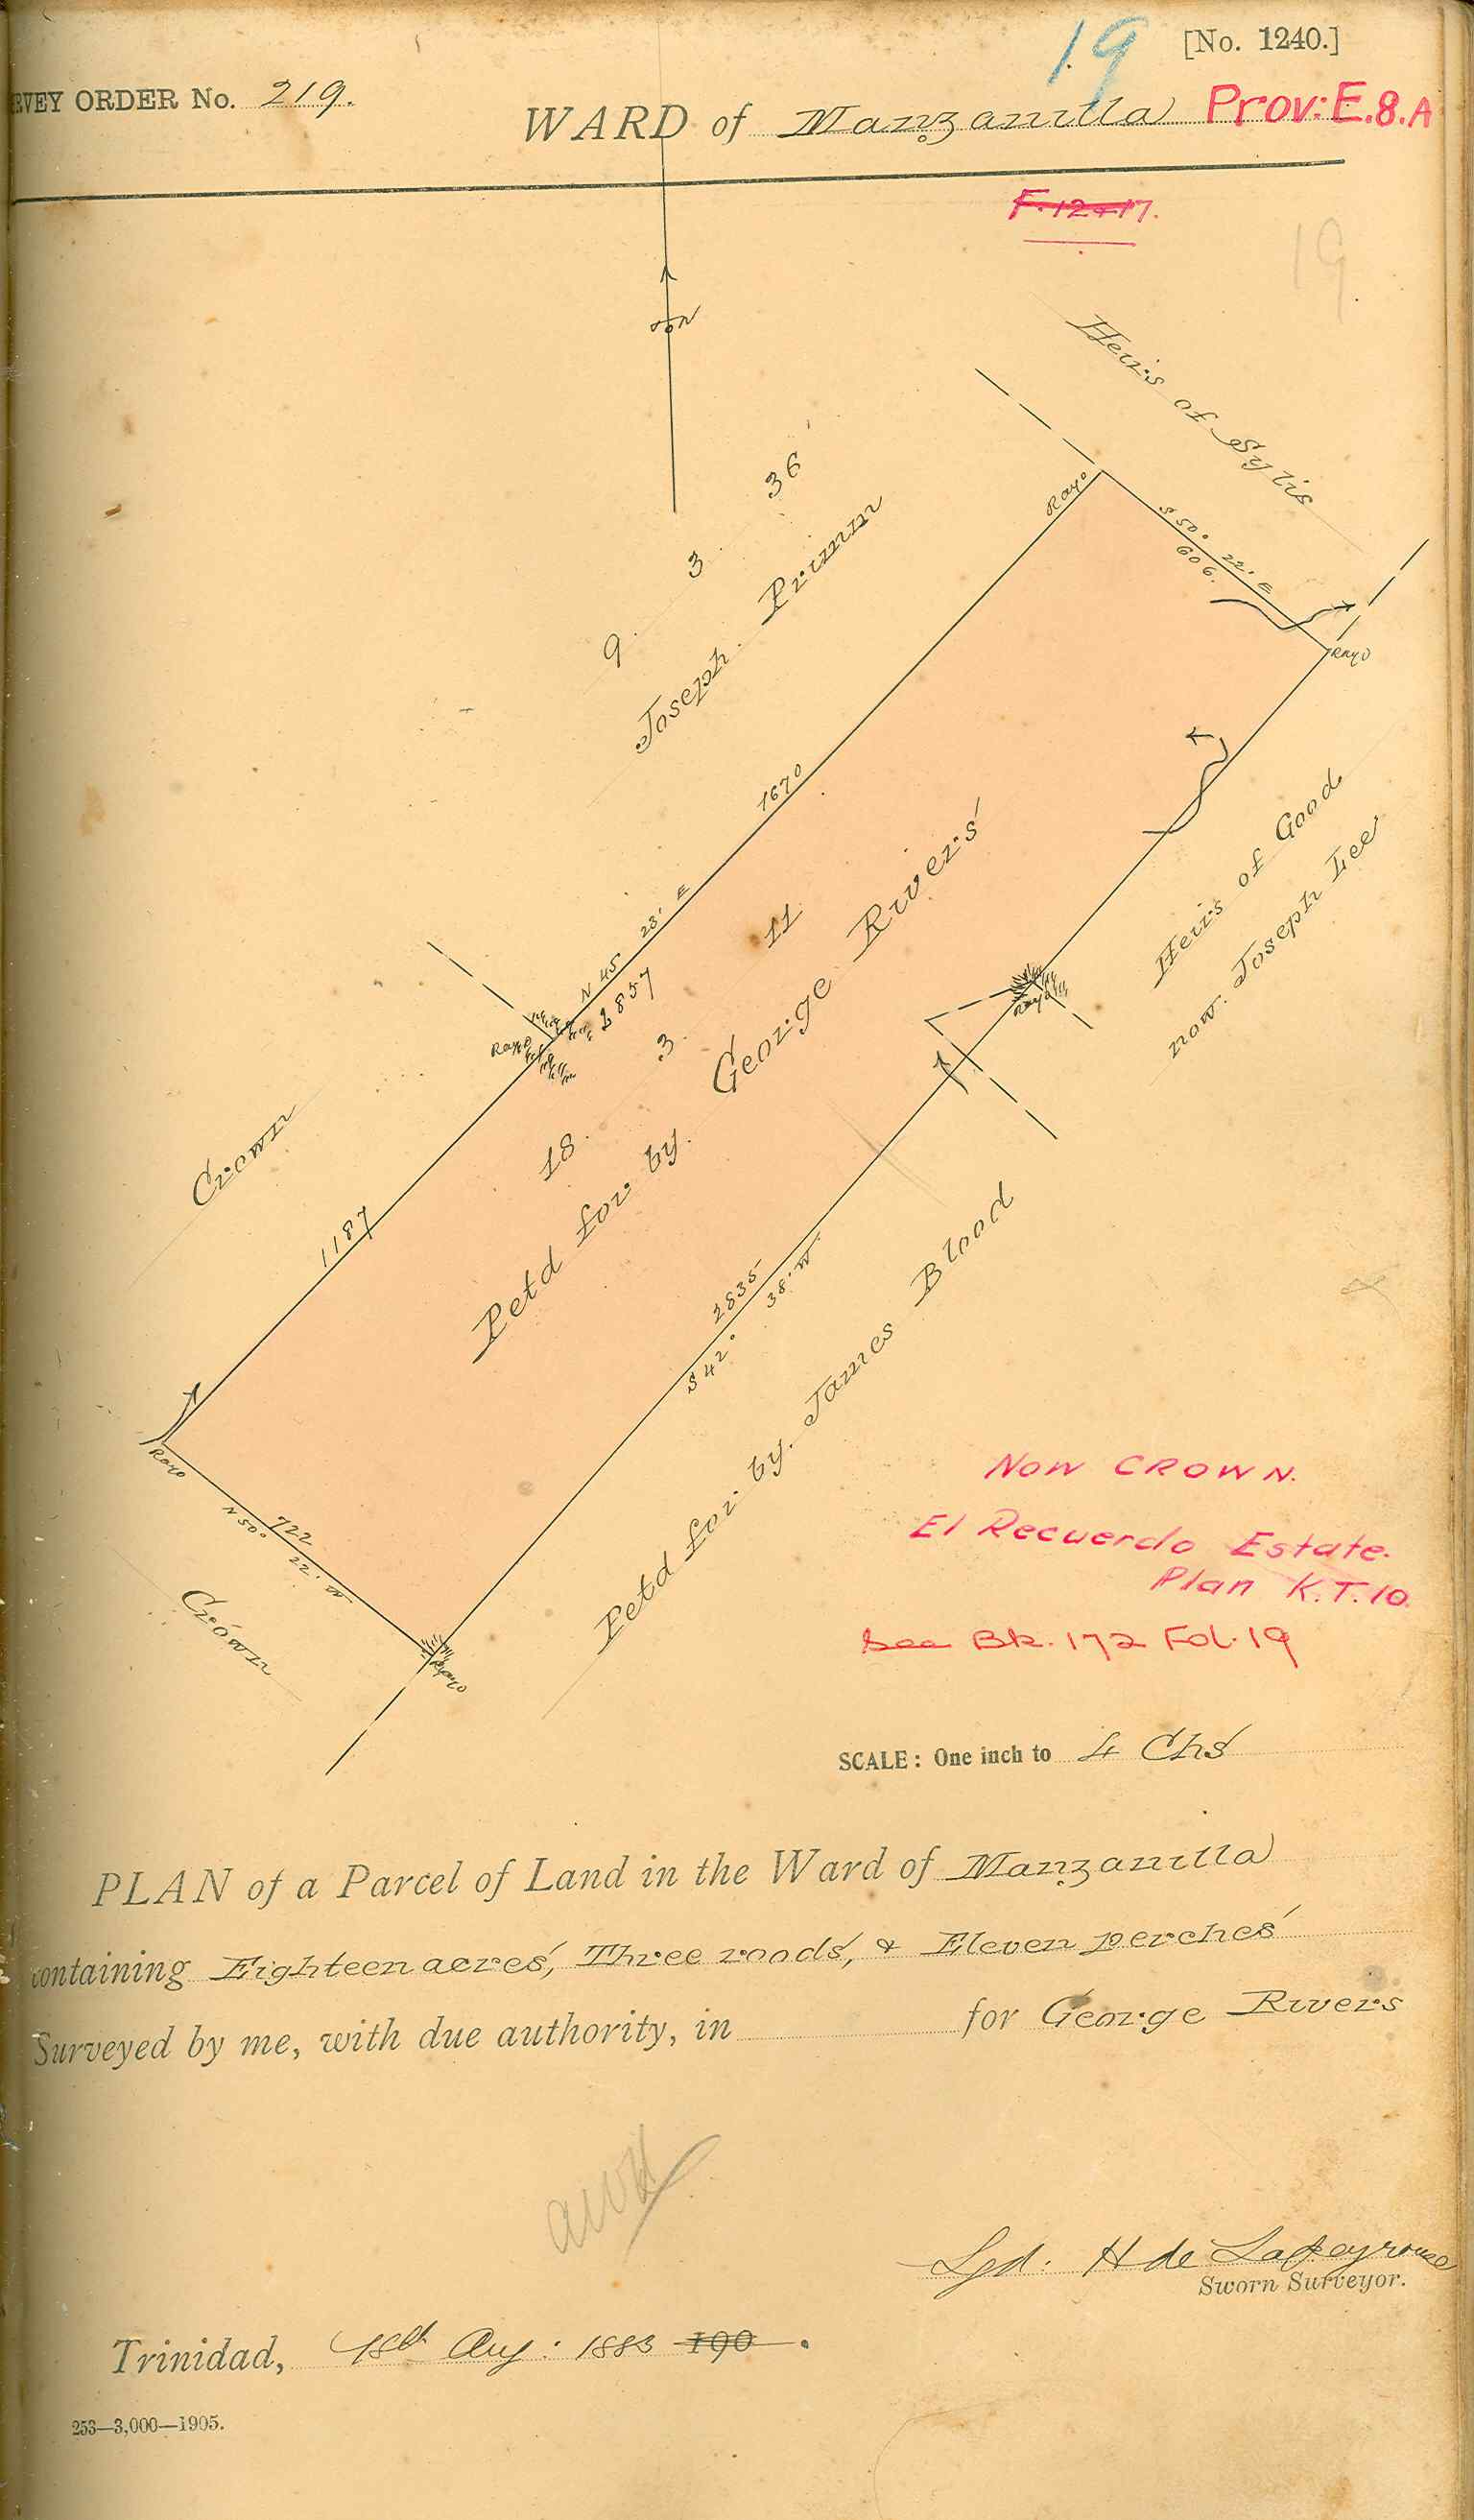 19
[No. 1240.]
RVEY ORDER No. 219.
WARD of Manzanilla Prov: E.8.A
F. 12 & 17.
19
Heirs of Sylis
9. 3. 36
Joseph Prunn
Rayo
S 50° 22' E
606.
Rayo
1670
N 45 23' E
2857
Rayo
Heirs of Good
now Joseph Lee
Rayo
18. 3. 11
Petd for by George Rivers
Crown
1187
2835
S 42° 38' W
Petd for by James Blood
Rayo
722
N 50° 22' W
Rayo
Crown
NOW CROWN.
El Recuerdo Estate.
Plan K.T.10.
See Bk. 172 Fol. 19
SCALE: One inch to 4 Chs
PLAN of a Parcel of Land in the Ward of Manzanilla
containing Eighteen acres, Three roods, & Eleven perches
Surveyed by me, with due authority, in for George Rivers
Sgd. H de Lapeyrouse
Sworn Surveyor.
Trinidad, 18th Aug: 1883 190 .
253—3,000—1905.